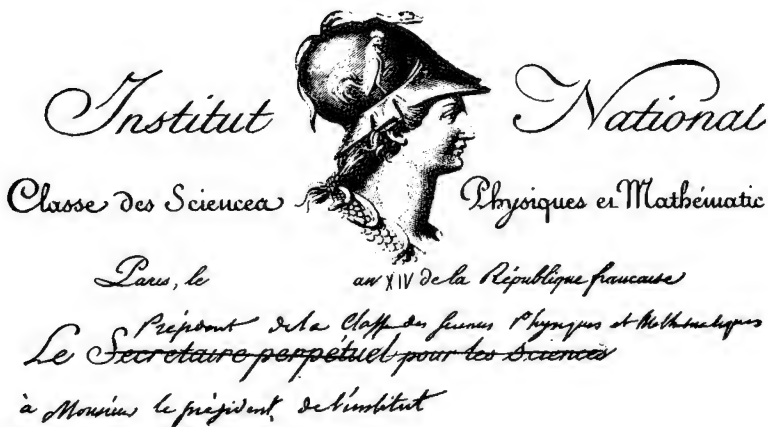 Institut National
Classe des Sciences Physiques et Mathématic
Paris, le an XIV de la République francaise
Président de la Classe des Sciences Physiques et Mathematiques
Le Secretaire perpétuel pour les Sciences
à Monsieur le président de l'institut